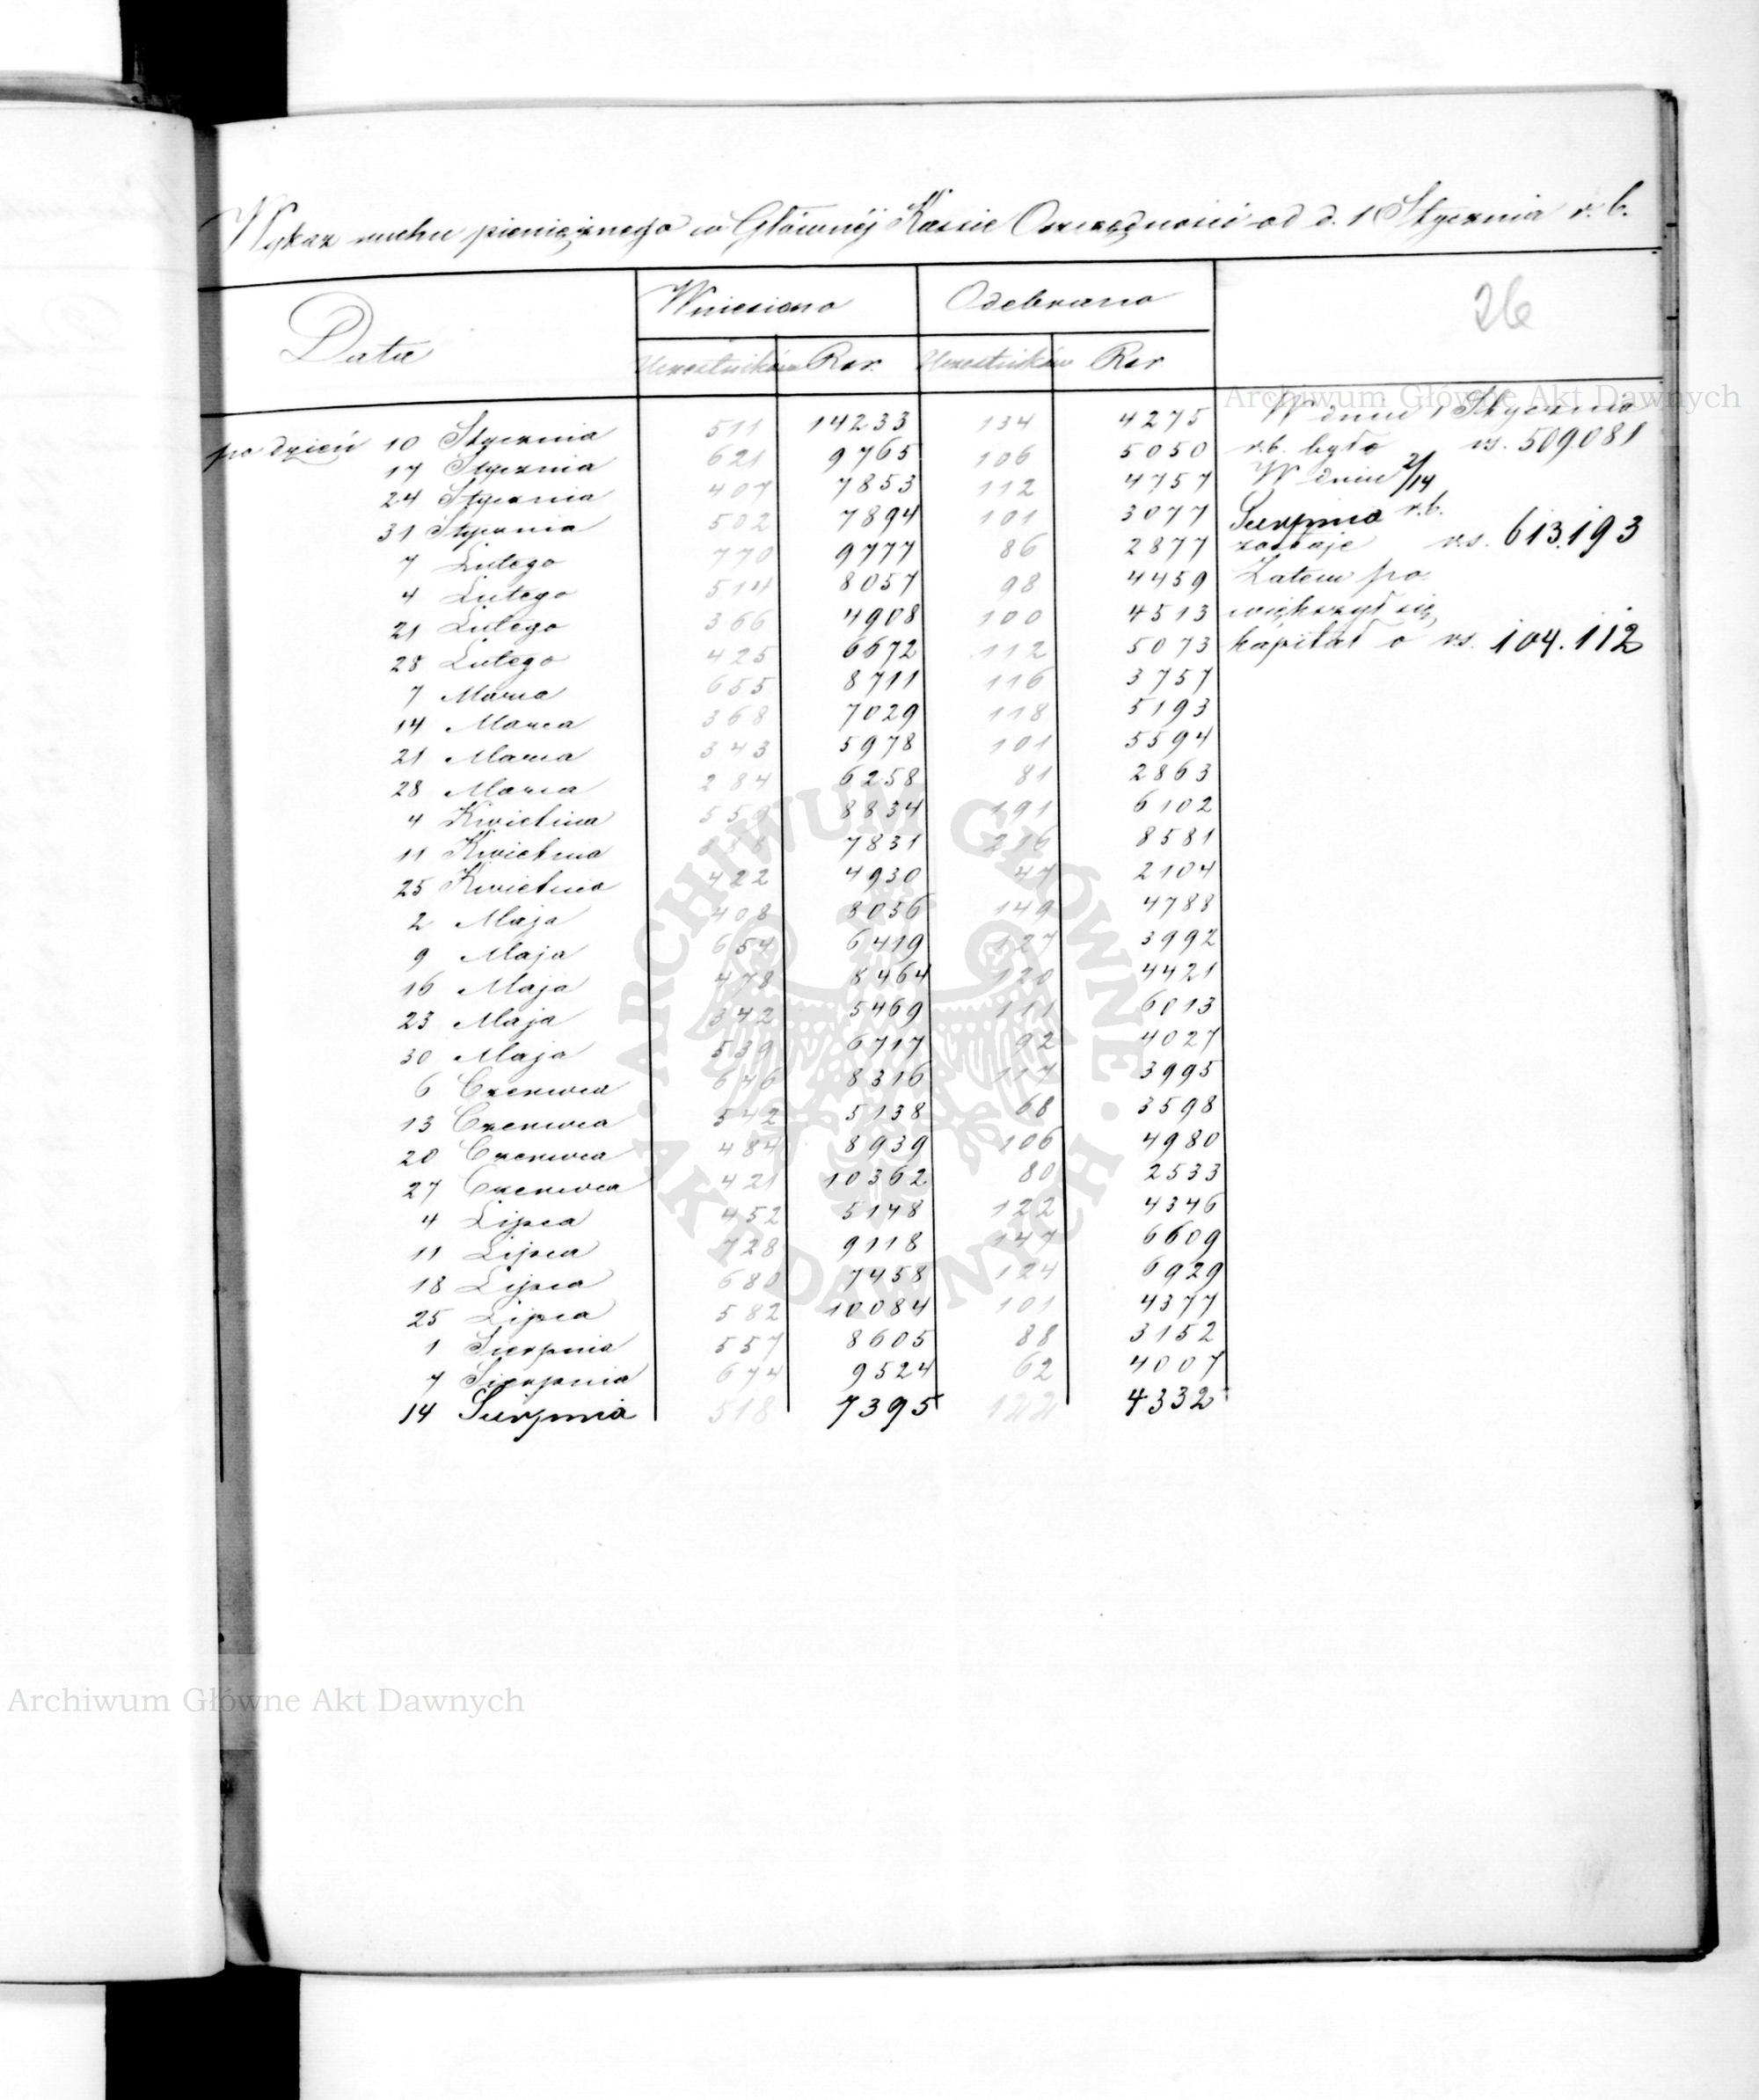 Wykaz ruchu pieniężnego w Głównéj Kassie Oszczędności od d. 1 Stycznia r. b.
Data Wniesiono Odebrano 26
Uczestników Rsr. Uczestników Rsr
po dzień 10 Stycznia 511 14233 134 4275
17 Stycznia 621 9765 106 5050
24 Stycznia 407 7853 112 4757
31 Stycznia 502 7894 101 3077
7 Lutego 770 9777 86 2877
4 Lutego 514 8057 98 4459
21 Lutego 366 4908 100 4513
28 Lutego 425 6672 112 5073
7 Marca 655 8711 116 3757
14 Marca 368 7029 118 5193
21 Marca 343 5978 101 5594
28 Marca 284 6258 81 2863
4 Kwietnia 559 8834 191 6102
11 Kwietnia 7831 216 8581
25 Kwietnia 422 4930 47 2104
2 Maja 408 8056 149 4788
9 Maja 654 6419 127 3992
16 Maja 478 8464 120 4421
23 Maja 342 5469 111 6013
30 Maja 539 6717 92 4027
6 Czerwca 646 8316 117 3995
13 Czerwca 542 5138 68 3598
20 Czerwca 484 8939 106 4980
27 Czerwca 421 10362 80 2533
4 Lipca 452 5148 122 4346
11 Lipca 728 9118 147 6609
18 Lipca 680 7458 124 6929
25 Lipca 582 10084 101 4377
1 Sierpnia 557 8605 88 3152
7 Sierpnia 674 9524 62 4007
14 Sierpnia 518 7395 122 4332
W dniu 1 Stycznia
r.b. było rs. 509081
W dniu 2/14
Sierpnia r.b.
zostaje rs. 613.193
Zatem po
większył się
kapitał o rs. 104.112
Archiwum Główne Akt Dawnych
ARCHIWUM GŁÓWNE
AKT DAWNYCH
Archiwum Główne Akt Dawnych